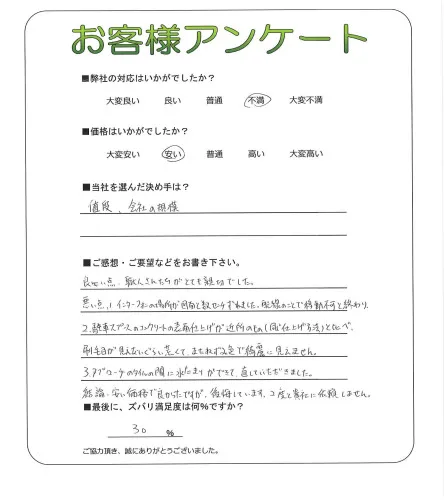 お客様アンケート
■弊社の対応はいかがでしたか?
大変良い 良い 普通 不満 大変不満
■価格はいかがでしたか?
大変安い 安い 普通 高い 大変高い
■当社を選んだ決め手は?
値段、会社の規模
■ご感想・ご要望などをお書き下さい。
良い点、職人さんたちがとても親切でした。
悪い点、1.インターホンの場所が図面と数センチずれました。配線のことで移動不可と終わり。
2.駐車スペースのコンクリートの表面仕上げが近所のもの(同じ仕上げ方法)と比べ、
刷毛目が見えないぐらい荒くて、まちまちな色で綺麗に見えません。
3.アプローチのタイルの間に水たまりができて、直していただきました。
結論、安い価格で良かったですが、後悔しています。2度と貴社に依頼しません。
■最後に、ズバリ満足度は何%ですか?
30 %
ご協力頂き、誠にありがとうございました。